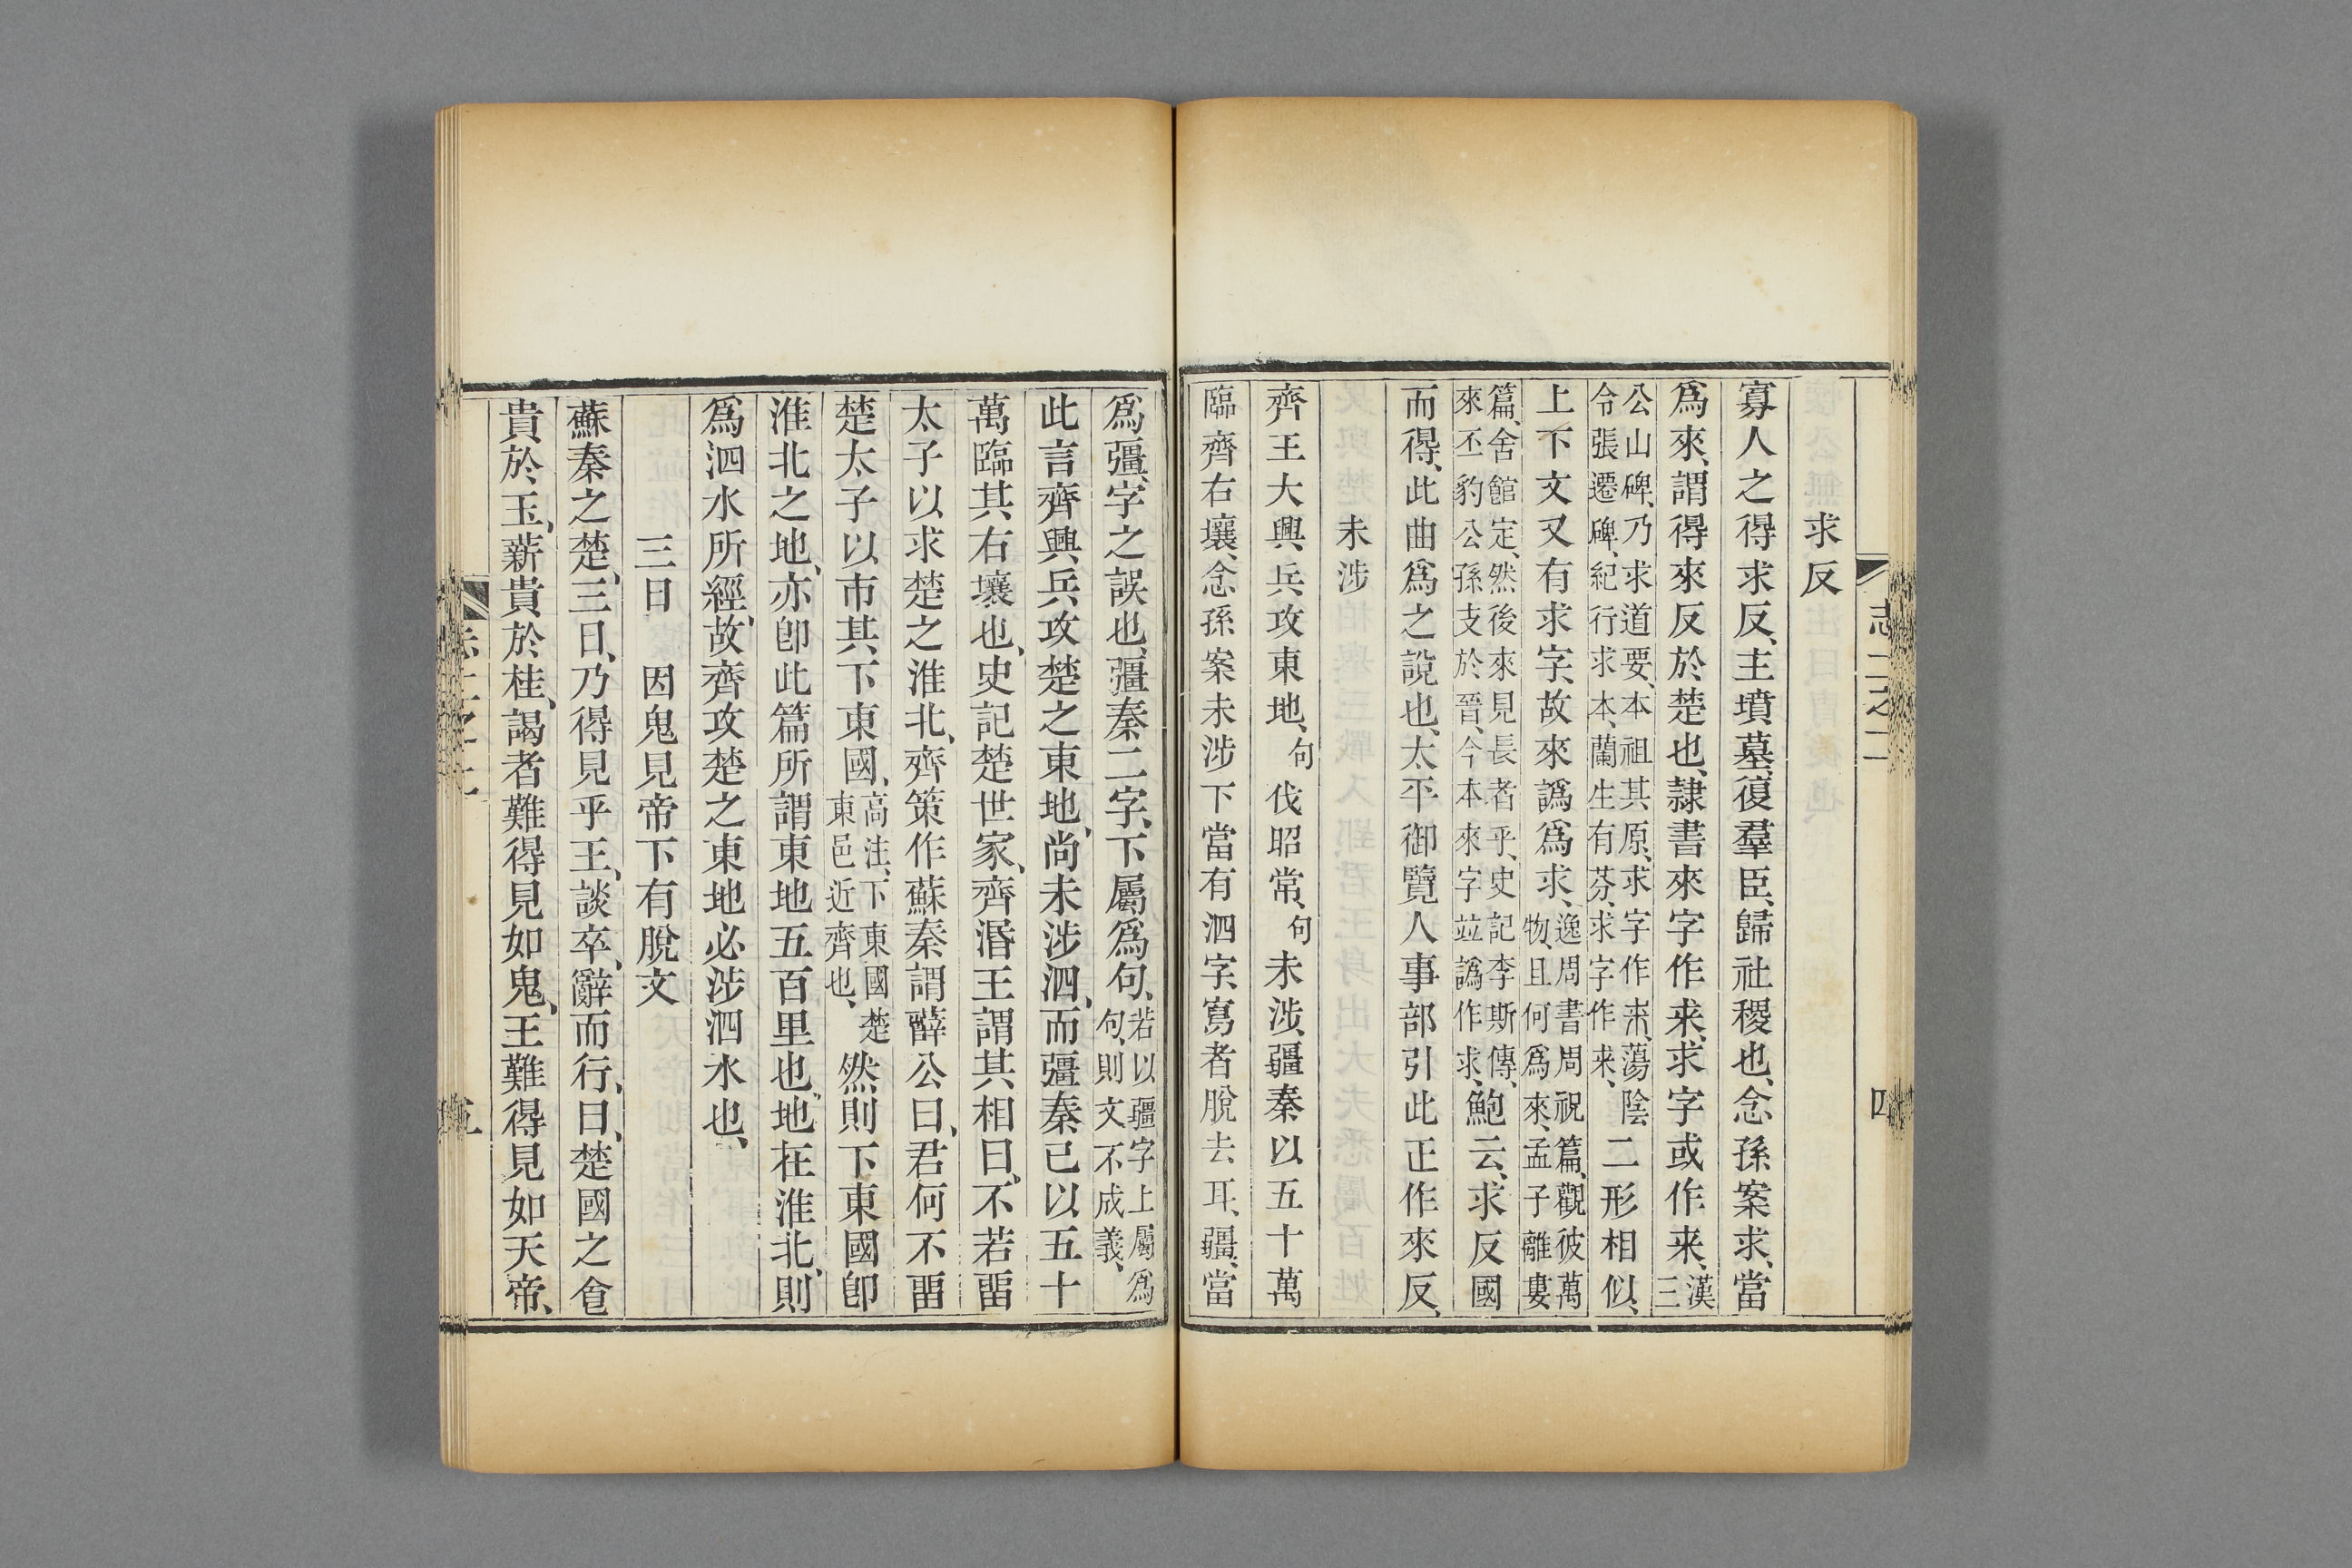 志二之二
四
求反
寡人之得求反、主墳墓、復羣臣、歸社稷也、念孫案、求、當
爲來、謂得來反於楚也、隸書來字作来、求字或作来、漢三
公山碑、乃求道要、本祖其原、求字作来、蕩陰
令張遷碑、紀行求本、蘭生有芬、求字作来、二形相似、
上下文又有求字、故來譌爲求、逸周書周祝篇、觀彼萬
物、且何爲來、孟子離婁
篇、舍館定、然後來見長者乎、史記李斯傳、
來丕豹公孫支於晉、今本來字竝譌作求、鮑云、求反國
而得、此曲爲之說也、太平御覽人事部引此正作來反、
未涉
齊王大興兵攻東地、句伐昭常、句未涉疆秦以五十萬
臨齊右壤、念孫案未涉下當有泗字、寫者脫去耳、疆、當
爲彊、字之誤也、彊秦二字、下屬爲句、若以疆字上屬爲
句、則文不成義、
此言齊興兵攻楚之東地、尚未涉泗、而彊秦已以五十
萬臨其右壤也、史記楚世家、齊湣王謂其相曰、不若畱
太子以求楚之淮北、齊策作蘇秦謂薛公曰、君何不畱
楚太子以市其下東國、高注、下東國楚
東邑近齊也、然則下東國卽
淮北之地、亦卽此篇所謂東地五百里也、地在淮北、則
爲泗水所經、故齊攻楚之東地必涉泗水也、
三日　因鬼見帝下有脫文
蘇秦之楚、三日、乃得見乎王、談卒、辭而行、曰、楚國之食
貴於玉、薪貴於桂、謁者難得見如鬼、王難得見如天帝、